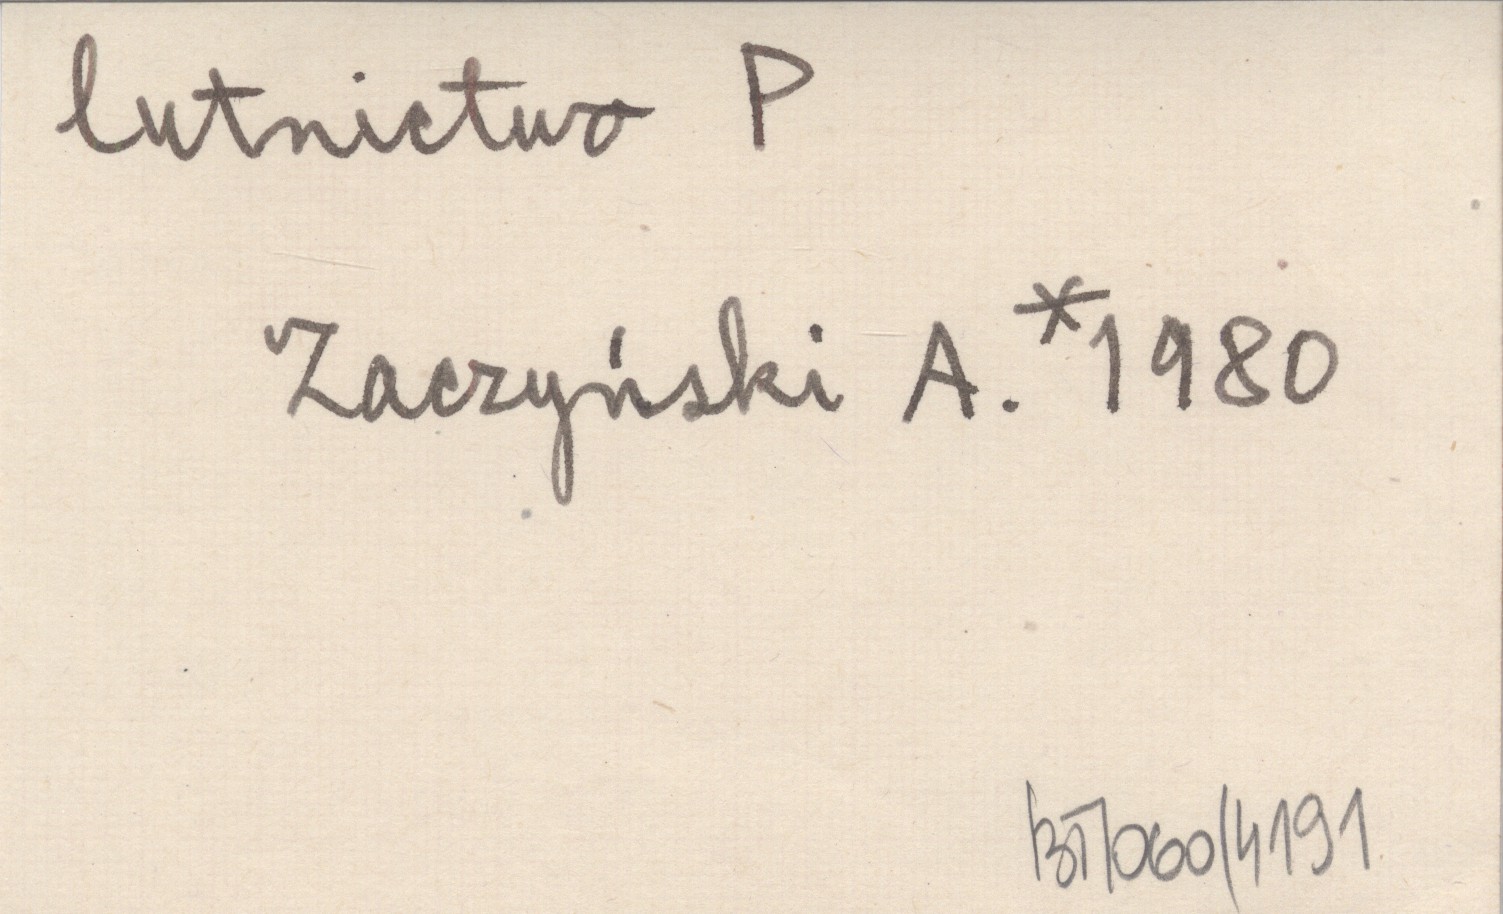 lutnictwo P
Zaczyński A. *1980
BT/060/4191